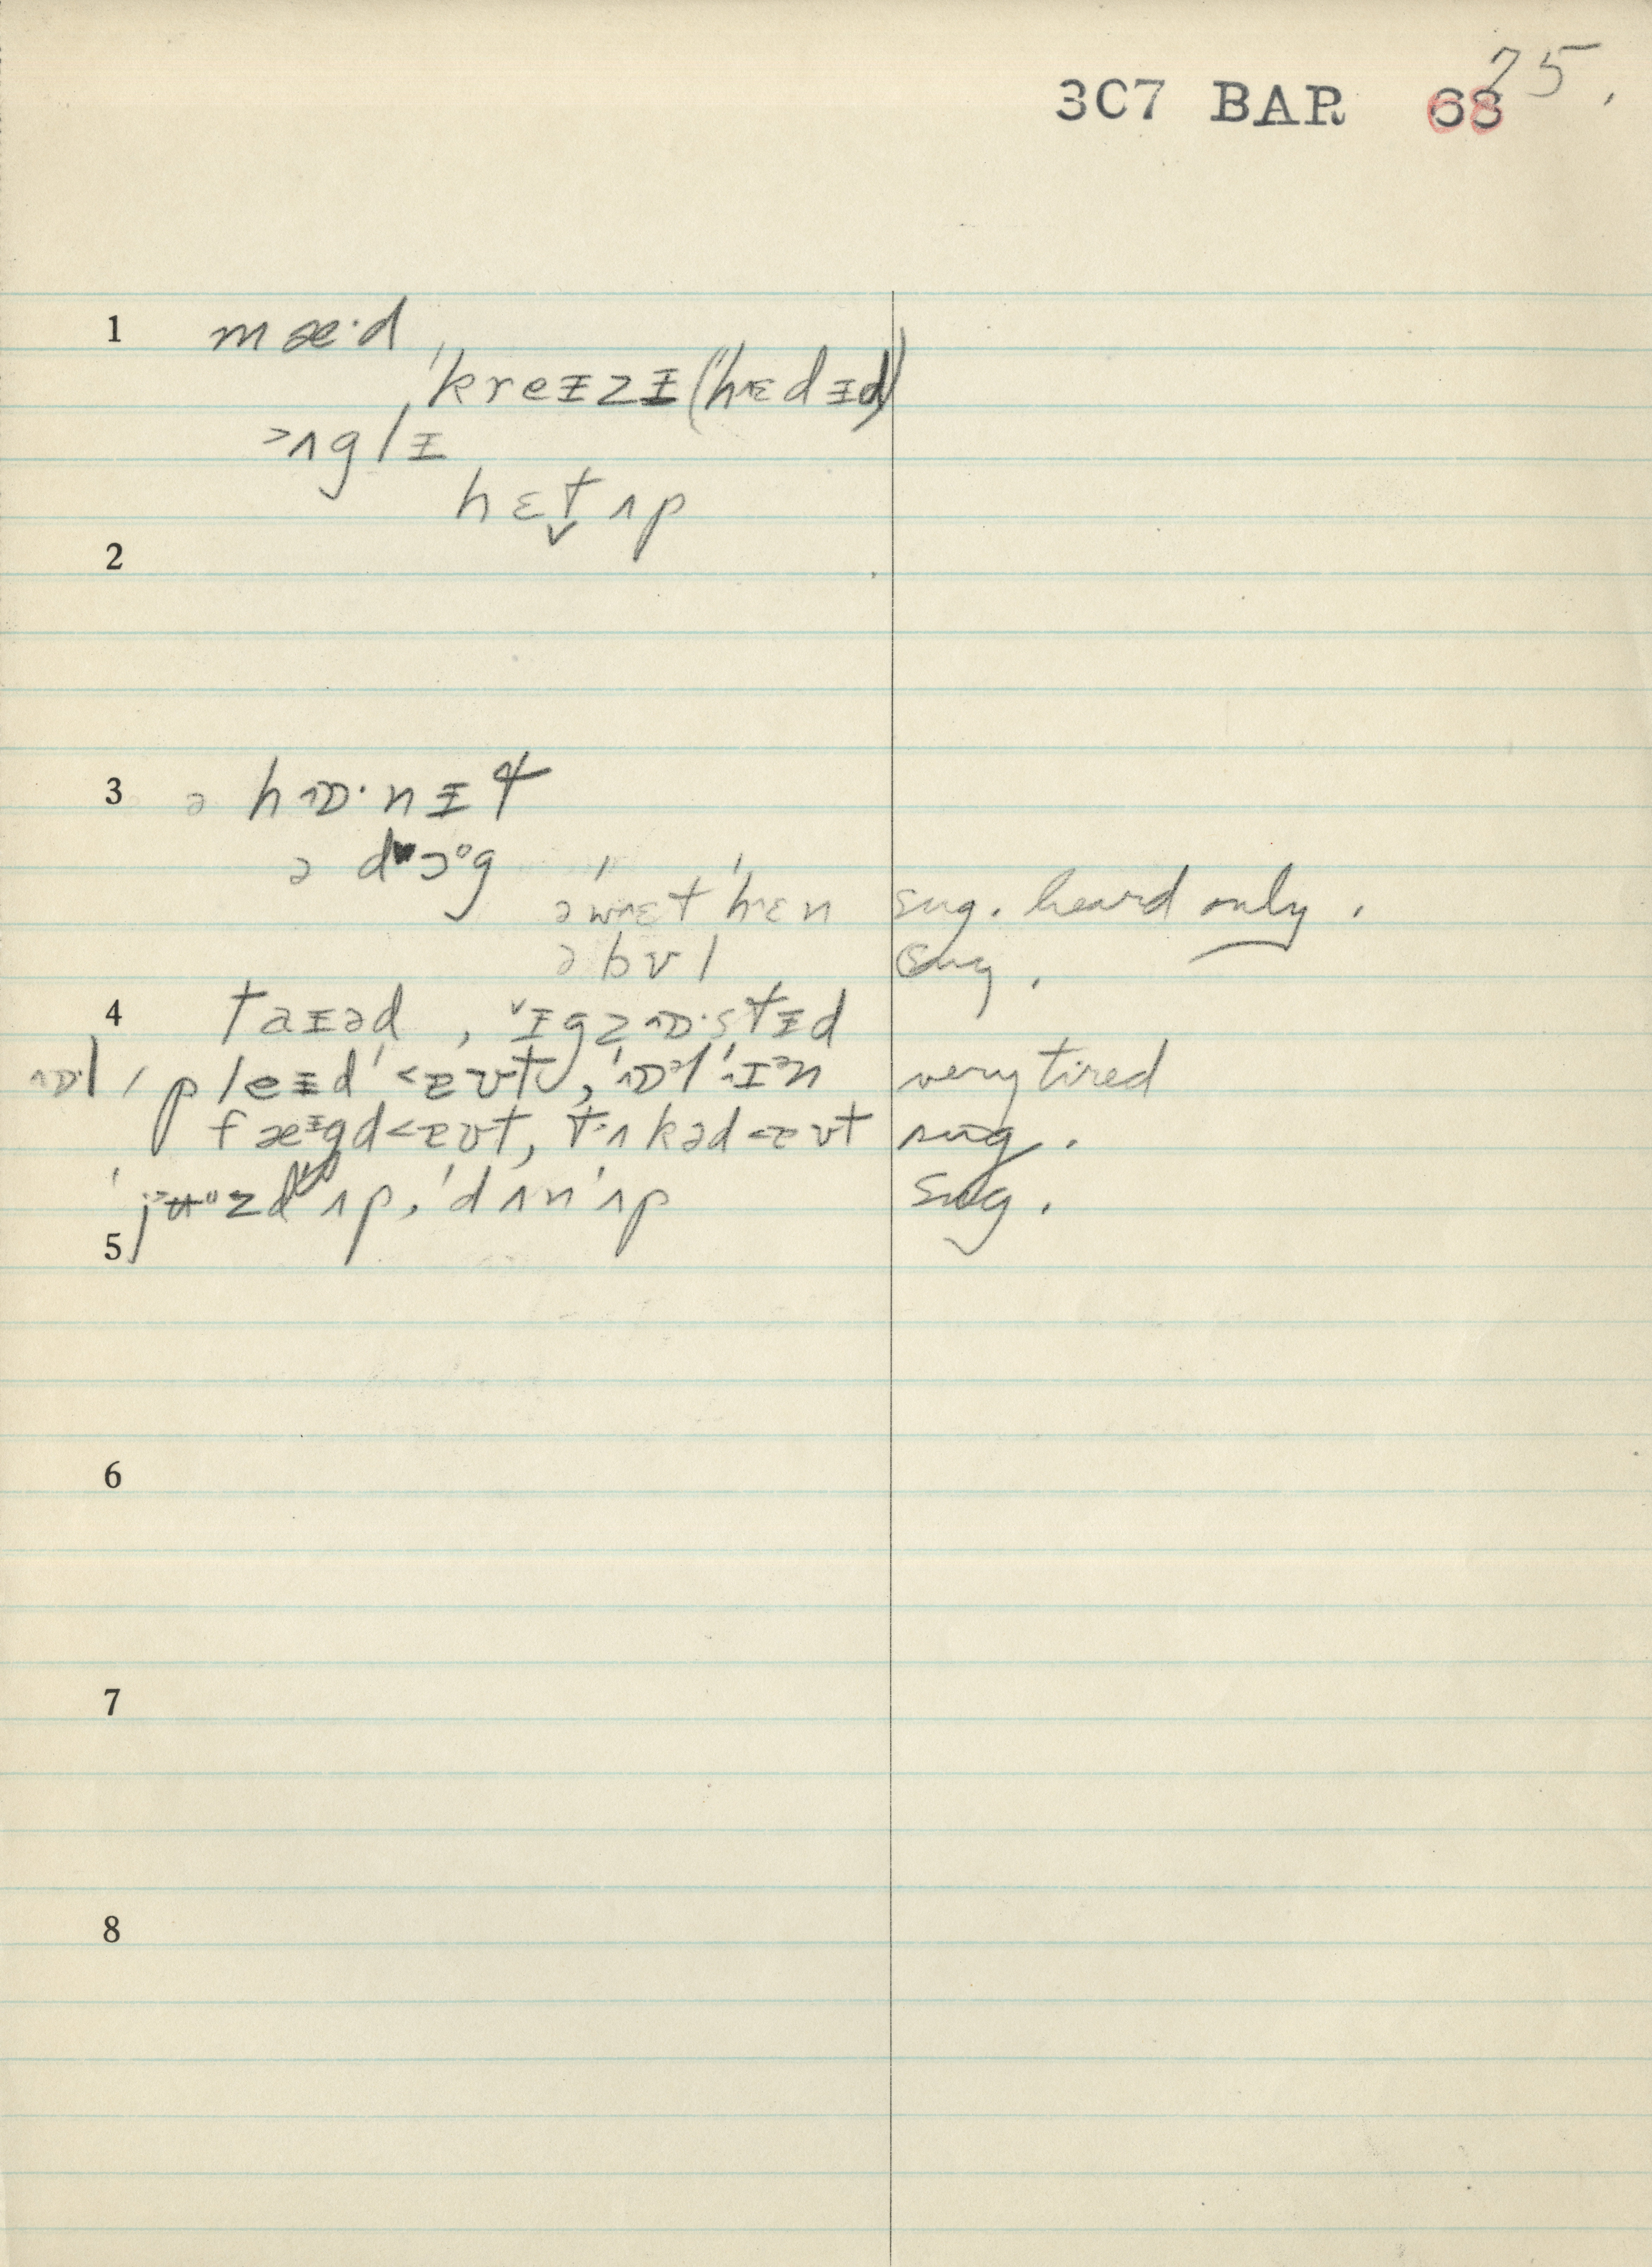 75.
3C7 BAR 68
1 mæ·d,
ˈkreᵻzᵻ(ˈhɛdᵻd)
>ʌglᵻ
hɛt̬ʌp
2
3 ə hɒ·nᵻt
ə dɔ·g
əˈwɛtˈhɛn sug. heard only.
ə bʊl sug.
4 taᵻəd, ᵻgzɒ·stᵻd
ɒ·l ˈpleᵻdˈ<ɛʊt, ˈɒ·lˈɪᵊn very tired
fæᵻgd<ɛʊt, tʌkəd<ɛʊt sug.
ˈjʉ·zdˈʌp, ˈdʌnˈʌp sug.
5
6
7
8